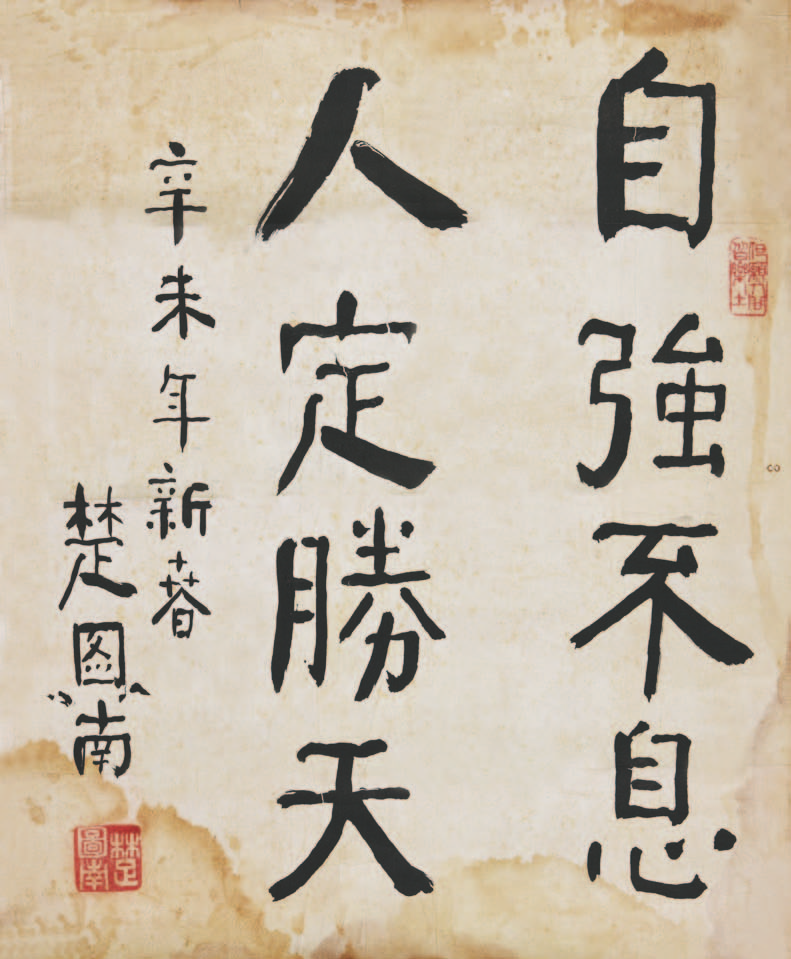 自強不息
人定勝天
辛未年新春
楚图南
楚圖南